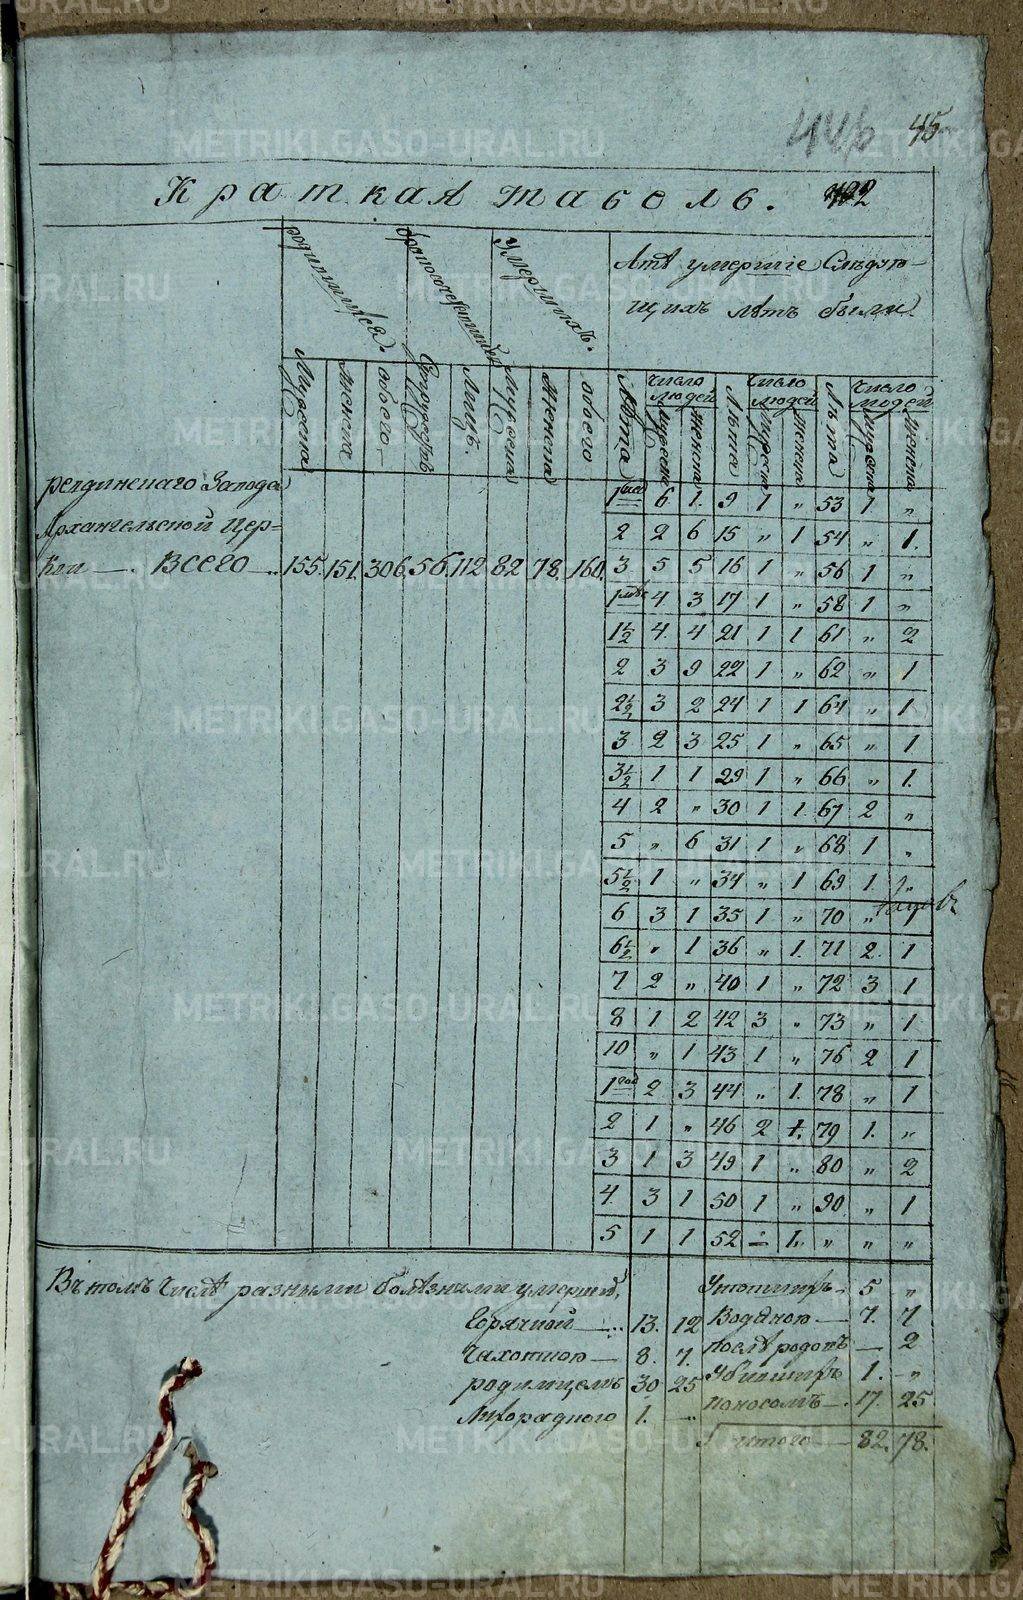 45
Краткая табель.
родившихся.
бракосочетавшихся
умершихъ.
Лѣтъ умершіе Слѣдую-
щихъ лѣтъ были
Мужеска
Женска
обоего
Супружествъ
Лицъ.
Мужеска
Женска
обоего
Лѣта
Число людей
Мужеска
женска
Лѣта
Число людей
Мужеска
женска
Лѣта
Число людей
Мужеска
женска
ревдинскаго Завода
Архангельской Цер-
кви — . ВСЕГО .. 155. 151. 306. 56. 112. 82. 78. 160.
1 6 1. 9 1 „ 53 1 „
2 2 6 15 „ 1 54 „ 1.
3. 5 5 16 1 „ 56 1 „
1 4 3 17 1 „ 58 1 „
1½ 4. 4 21 1 1 61 „ 2
2 3 9 22 1 „ 62 „ 1
2½ 3 2 24 1 1 64 „ 1
3 2 3 25 1 „ 65 „ 1
3½ 1 1 29 1 „ 66 „ 1.
4 2 „ 30 1 1. 67 2 „
5 „ 6 31 1 „ 68 1 „
5½ 1 „ 34 „ 1 69 1. „
6 3 1 35 1 „ 70 „ 1
6½ „ 1 36 „ 1. 71 2. 1
7 2 „ 40 1 „ 72 3 1
8 1 2 42 3 „ 73 „ 1
10 „ 1 43 1 „ 76 2 1
1 2 3 44 „ 1. 78 „ 1
2 1 „ 46 2 1. 79 1. „
3 1 3 49 1 „ 80 „ 2
4. 3 1 50 1 „ 90 „ 1
5 1 1 52 — 1. „ „ „
Въ томъ Числѣ разными болѣзнями умершихъ,
Горячкой — 13. 12
Чахоткою — 8. 7.
родимцемъ 30 25
Лихорадкою 1. —
Утопшихъ — 5 „
Водяною — 7. 7
послѣ родовъ — 2
Убившихъ 1. „
поносомъ — 17. 25
Итого — 82. 78.
METRIKI.GASO-URAL.RU